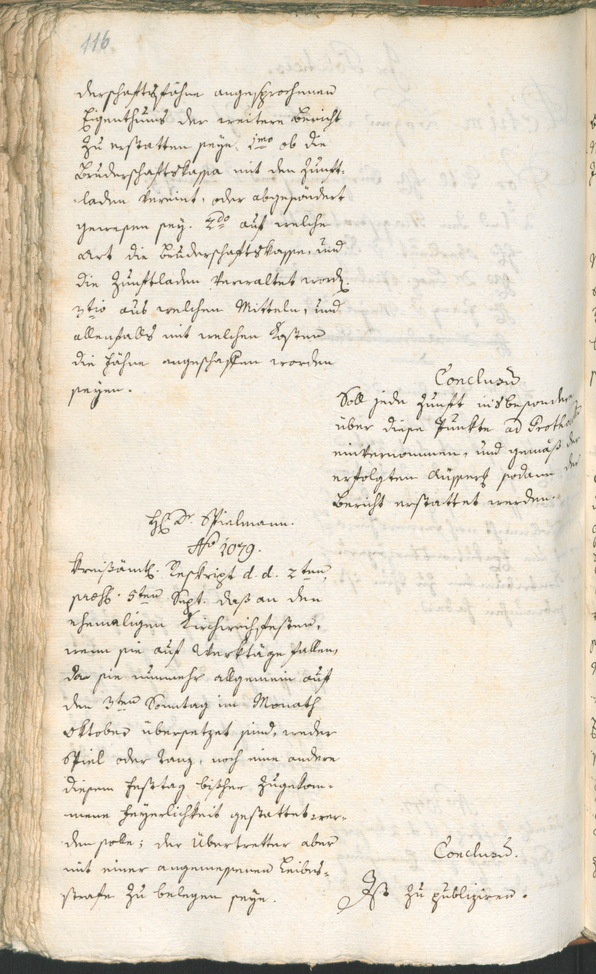 116.
derschaftsfahne angesprochenen
Eigenthums der weitere Bericht
zu erstatten seye. 1mo ob die
Bruderschaftskassa mit den Zunft-
laden vereint, oder abgesöndert
gewesen sey. 2do auf welche
Art die Bruderschaftskasse, und
die Zunftladen verwaltet word.
3tio aus welchen Mitteln, und
allenfalls mit welchen Kosten
die Fahne angeschaffen worden
seyen.
Conclusum
Soll jede Zunft insbesondere
über diese Punkte ad Protho
einvernommen, und gemäß der
erfolgten sodann der
Bericht erstattet werden.
H. Dr. Spielmann.
No 1079.
Kreisämtl. Reskript d. d. 2ten,
präs. 5ten Sept. daß an den
ehemaligen Kirchweihfesten,
wenn sie auf Werktäge fallen,
da sie nunmehr allgemein auf
den 3ten Sonntag im Monath
Oktober übersetzet sind, weder
Spiel oder Tanz, noch eine andere
diesem Festtag bisher zugekom-
mene Feyerlichkeit gestattet wer-
den solle; der Übertretter aber
mit einer angemessenen Leibes-
strafe zu belegen seye.
Conclusum.
Ist zu publiziren.